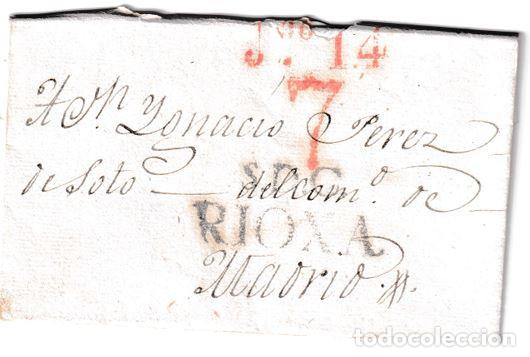 Jnio. 14
7
A Dn Ygnacio Perez
de Soto del Como. de
RIOXA
Madrid
todocoleccion